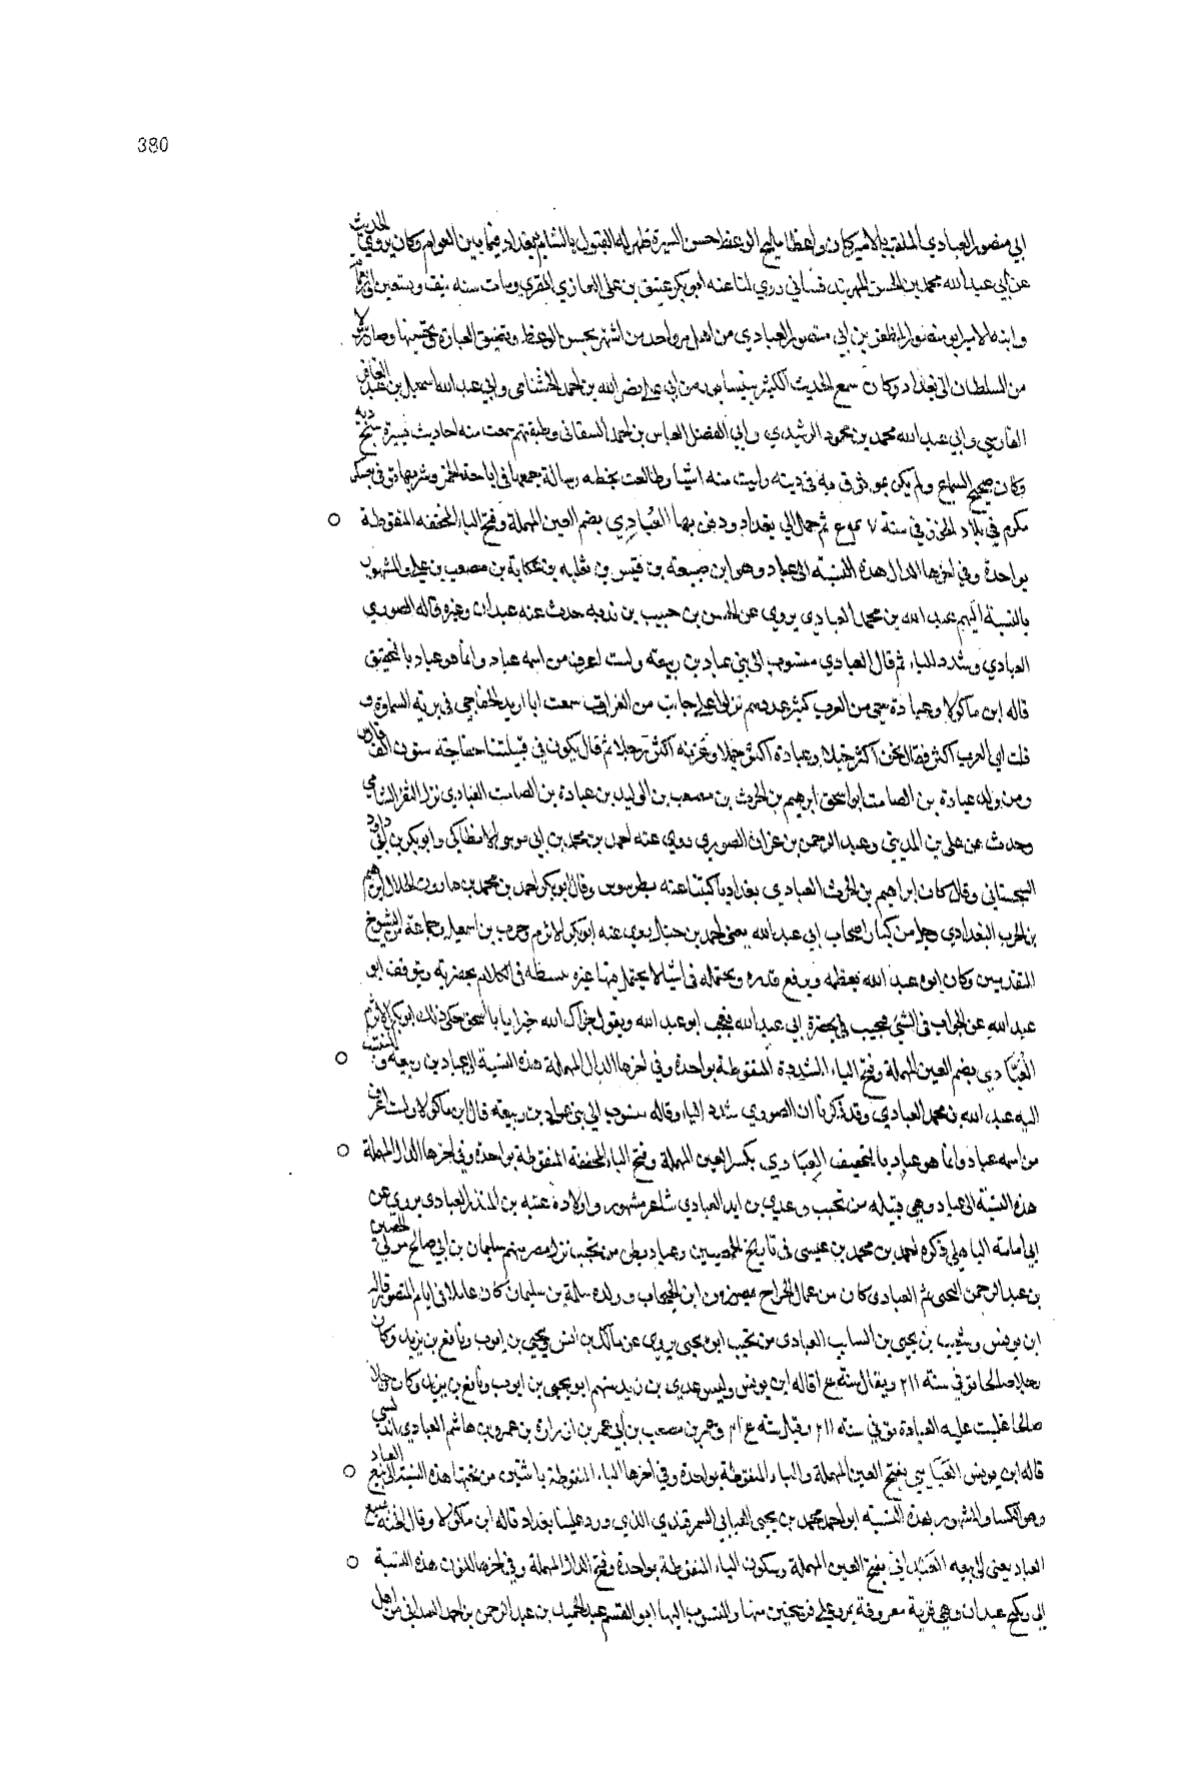 380
ابي منصور العبادي الملقب بالامير كان واعظا مليح الوعظ حسن السيرة ظهر له القبول بالشام وبغداد فيما بين العوام وكان يروي الحديث
عن ابي عبد الله محمد بن الحسن المهربندقشائي روى لنا عنه ابو بكر عتيق بن علي الغازي المقري ومات سنة نيف وتسعين
وابنه الامير ابو منصور المظفر بن ابي منصور العبادي من اهل مرو احد من اشتهر بحسن الوعظ وتنميق العبارة وتحسينها وصار
من السلطان الى بغداد وكان سمع الحديث الكثير بنيسابور من ابي علي نصر الله بن احمد الخشنامي وابي عبد الله اسمعيل بن عبد الغافر
الفارسي وابي عبد الله محمد بن محمود الرشيدي وابي الفضل العباس بن احمد الشقاني وطبقتهم سمعت منه احاديث يسيرة
وكان صحيح السماع ولم يكن بموثوق به في دينه رايت منه اشيا وطالعت بخطه رسالة جمعها في اباحة الخمر وشربها توفي بعسكر
مكرم في بلاد الخوز في سنة ٥٤٧ ثم حمل الى بغداد ودفن بها العُبادي بضم العين المهملة وفتح الباء المخففة المنقوطة
بواحدة وفي اخرها الدال هذه النسبة الى عباد وهو ابن ضبيعة بن قيس بن ثعلبه بن عكابة بن صعب بن علي والمشهور
بالنسبة اليهم عبد الله بن محمد العبادي يروي عن الحسن بن حبيب بن ندبه حدث عنه عبدان وغيره قاله الصوري
العبادي وشدد الباء ثم قال العبادي منسوب الى بني عباد بن ربيعه ولست اعرف من اسمه عباد وانما هو عباد بالتخفيف
قاله ابن ماكولا وعبادة حي من العرب كثير عددهم نزلوا على جانب من الفرات سمعت ابا اريد الخفاجي في برية السماوة
قلت اي العرب اكثر فقال نحن اكثر خيلا وعبادة اكثر جملا وغزية اكثر رجلا ثم قال يكون في قبيلتنا خفاجة ستون الف فارس
ومن ولد عبادة بن الصامت ابو اسحق ابرهيم بن الحرث بن مصعب بن الوليد بن عبادة بن الصامت العبادي نزل الثغر الشامي
وحدث عن علي بن المديني وعبد الرحمن بن عزان الصوري روى عنه احمد بن محمد بن ابي موسى الانطاكي وابو بكر بن ابي داود
السجستاني وقال كان ابراهيم بن الحرث العبادي بغداديا كتبنا عنه بطرسوس وقال ابو بكر احمد بن محمد بن هارون الخلال ابرهيم
بن الحرث البغدادي رجل من كبار اصحاب ابي عبد الله يعني احمد بن حنبل روى عنه ابو بكر الاثرم وحرب بن اسمعيل وجماعة من الشيوخ
المتقدمين وكان ابو عبد الله يعظمه ويرفع قدره ويحتمله في اشيا لا يحتمل فيها غيره يبسطه في الكلام بحضرته ويتوقف ابو
عبد الله عن الجواب في الشي فيجيب هو بحضرة ابي عبد الله فيعجب ابو عبد الله ويقول جزاك الله خيرا يا ابا اسحق حكى ذلك ابو بكر الاثرم
العُبّادي بضم العين المهملة وفتح الباء المشددة المنقوطة بواحدة وفي اخرها الدال المهملة هذه النسبة الى عباد بن ربيعة والمنتسب
اليه عبد الله بن محمد العبادي وقد ذكرنا ان الصوري شدد الباء وقاله منسوب الى بني عباد بن ربيعة قال ابن ماكولا ولست اعرف
من اسمه عباد وانما هو عباد بالتخفيف العِبَادي بكسر العين المهملة وفتح الباء المخففة المنقوطة بواحدة وفي اخرها الدال المهملة
هذه النسبة الى عباد وهي قبيله من تجيب وعدي بن زيد العبادي شاعر مشهور واولاده عتبه بن المنذر العبادي يروي عن
ابي امامة الباهلي ذكره احمد بن محمد بن عيسى في تاريخ الحمصيين وعباد بطن من تجيب نزل مصر منهم سليمان بن ابي صالح مولى الحصين
بن عبد الرحمن التجيبي ثم العبادي كان من عمال الخراج بمصر زمن ابن الحبحاب وولده سلمة بن سليمان كان عاملا في ايام المنصور قاله
ابن يونس وشعيب بن يحيى بن السايب العبادي من تجيب ابو يحيى يروي عن مالك بن انس ويحيى بن ايوب ونافع بن يزيد وكان
رجلا صالحا توفي في سنة ٢١١ ويقال سنة قاله ابن يونس وليس عدي بن زيد منهم ابو يحيى بن ايوب ونافع بن يزيد وكان رجلا
صالحا غلبت عليه العبادة توفي سنة ٢١١ وقيل سنة وعمر بن مصعب بن ابي عمر بن زرارة بن عمرو بن هاشم العبادي اندلسي
قاله ابن يونس العَبَايي بفتح العين المهملة والباء المنقوطة بواحدة وفي اخرها الياء المنقوطة باثنتين من تحتها هذه النسبة الى بيع العباء
وهو الكساء والمشهور بهذه النسبة ابو احمد محمد بن يحيى العبايي السمرقندي الذي ورد علينا بغداد قاله ابن ماكولا وقال
العباء يعني الى بيعه العَبْدانِي بفتح العين المهملة وسكون الباء المنقوطة بواحدة وفتح الدال المهملة وفي اخرها النون هذه النسبة
الى عبدان وهي قرية معروفة بمرو على فرسخين منها والمنتسب اليها ابو القسم عبد الحميد بن عبد الرحمن بن احمد العبداني من اهل